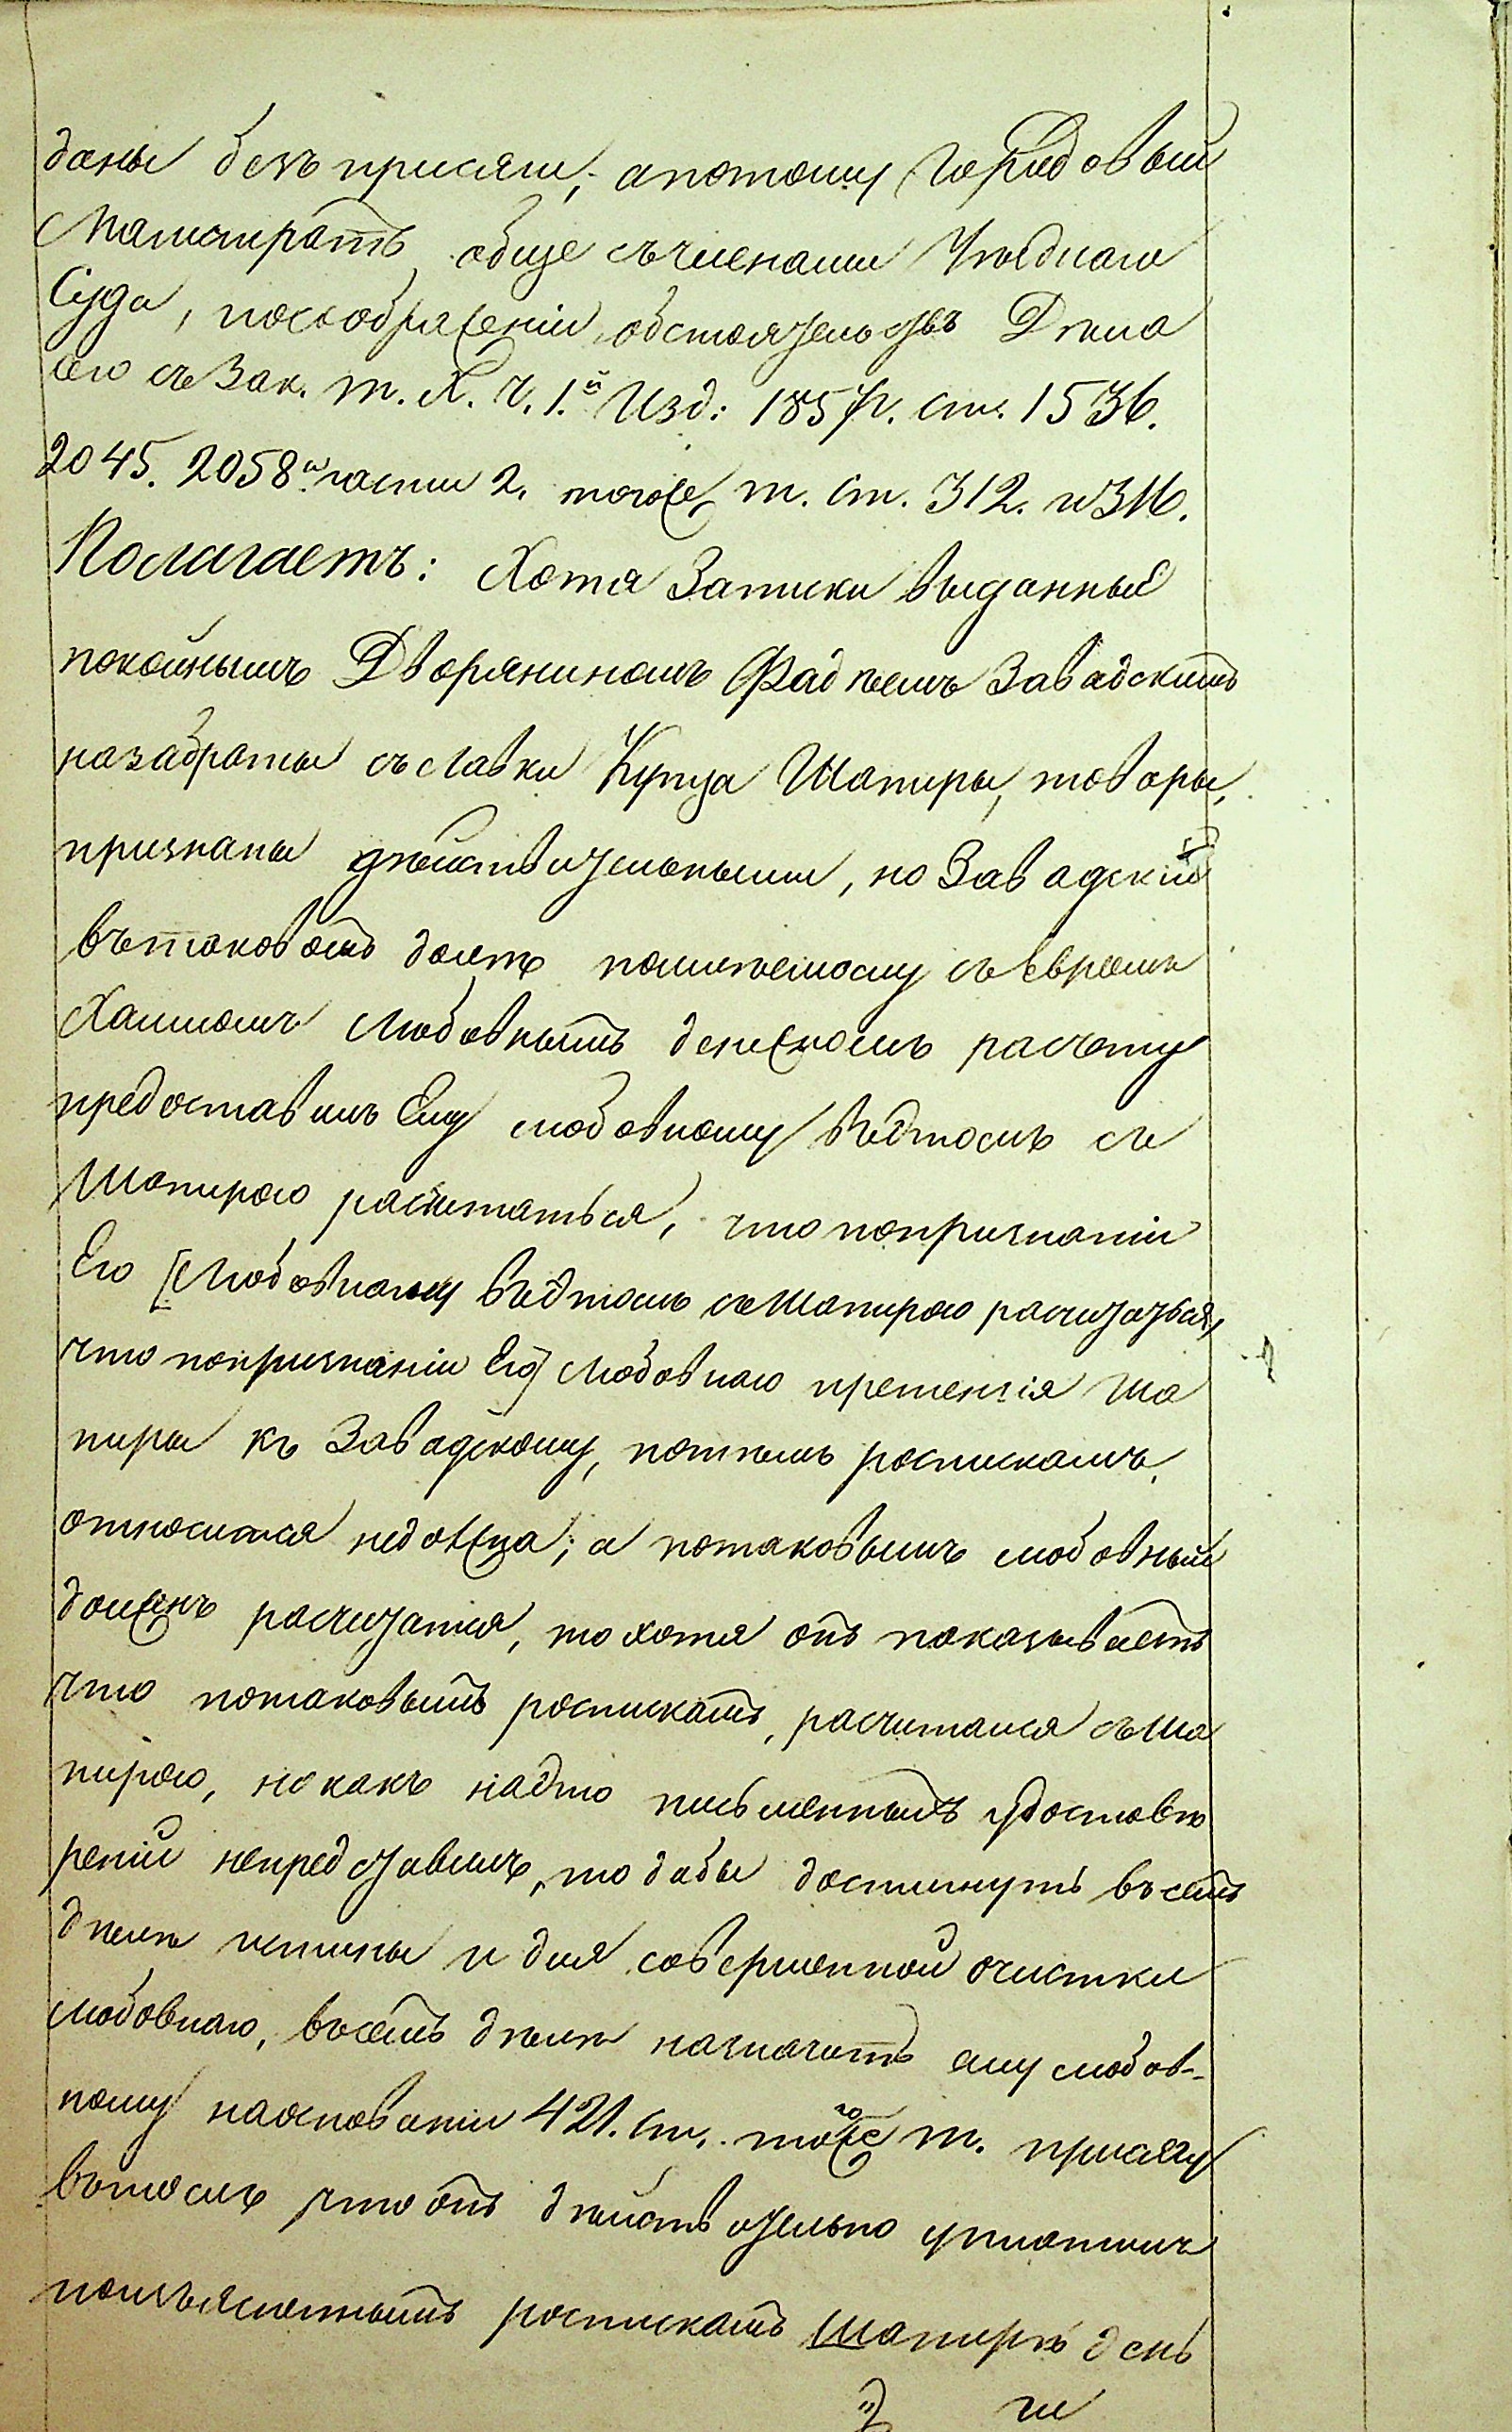 даны безъ присяги; а потому Городовый
Магистратъ обще съ членами Уѣзднаго
Суда, по соображеніи обстоятельствъ Дѣла
сего съ Зак. т. X. ч. 1.й Изд: 1857 г. ст. 1536.
2045. 2058.и части 2. тогоже т. ст. 312. и 316.
Полагаетъ: Хотя Записки выданный
покойнымъ Дворяниномъ Фадѣемъ Завадскимъ
на забраты съ лавки Купца Шапиры, товары,
признаны дѣйствительными, но Завадскій
въ таковомъ долгѣ по имѣемому съ Евреемъ
Хаимомъ Любовнымъ денежномъ расчету
предоставилъ Ему Любовному въ томъ съ
Шапирою расчитаться, что по признанію
Его [Любовному въ томъ съ Шапирою расчитаться,
что по признанію Его] Любовнаго претензія Ша
пиры къ Завадскому, по тѣмъ роспискамъ
относится недолжна; а по таковымъ Любовный
долженъ расчитатся, то хотя онъ показываетъ
что по таковымъ роспискамъ, расчитался съ Ша
пирою, но какъ на это письменныхъ удостовѣ
реній непредставилъ, то дабы достигнуть въ семъ
дѣлѣ истины и для совершенной очистки
Любовнаго, въ семъ дѣлѣ назначить ему Любов-
ному на основаніи 421. ст. тогоже т. присягу
въ томъ что онъ дѣйствительно уплатилъ
по изъясненнымъ роспискамъ Шапирѣ день
ги